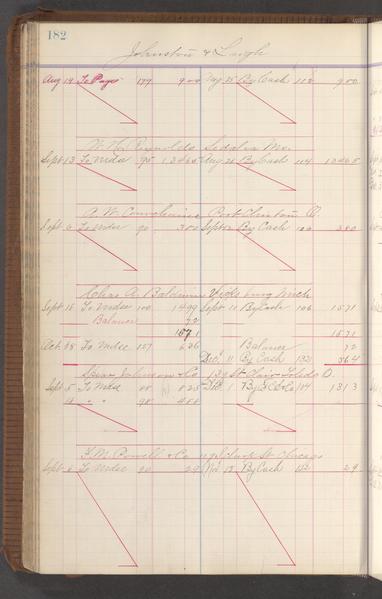 182
Johnston & Laugh
Aug 19 To Pays 177 900 Aug 25 By Cash 112 900
W. H. Reynolds Sedalia Mo.
Sept 13 To Mdse 95 13465 Aug 26 By Cash 114 13465
A. W. Port Clinton O.
Sept 6 To Mdse 90 380 Sept 12 By Cash 380
Chas A. Baldwin Vicksburg Mich
Sept 18 To Mdse 100 1499 Sept 11 By Cash 106 1571
Balance 72
1571 1571
Oct 28 To Mdse 127 636 Balance 72
Dec 11 By Cash 132 564
Johnson & Co 139 St Clair Toledo O.
Sept 5 To Mdse 88 825 1 By 1313
19 " " 98 488
F. M. Powell & Co St Chicago
Sept 6 To Mdse 90 29 Nov 18 By Cash 29